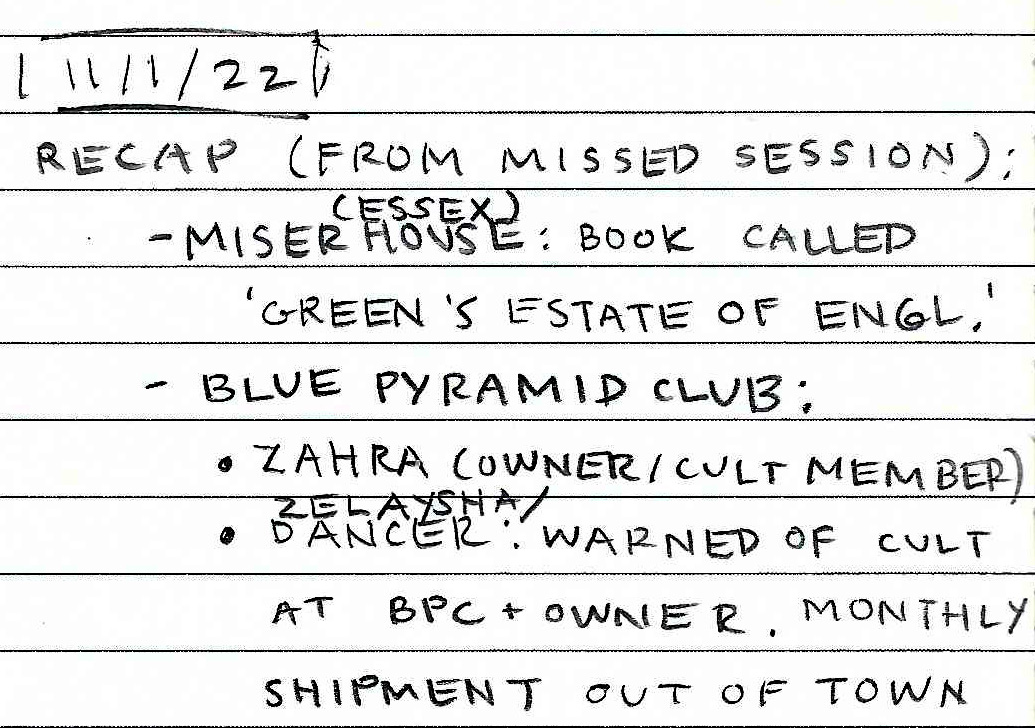 11/1/22
RECAP (FROM MISSED SESSION):
(ESSEX)
- MISER HOUSE: BOOK CALLED
'GREEN'S ESTATE OF ENGL.'
- BLUE PYRAMID CLUB:
• ZAHRA (OWNER/CULT MEMBER)
ZELAYSHA/
• DANCER: WARNED OF CULT
AT BPC + OWNER. MONTHLY
SHIPMENT OUT OF TOWN